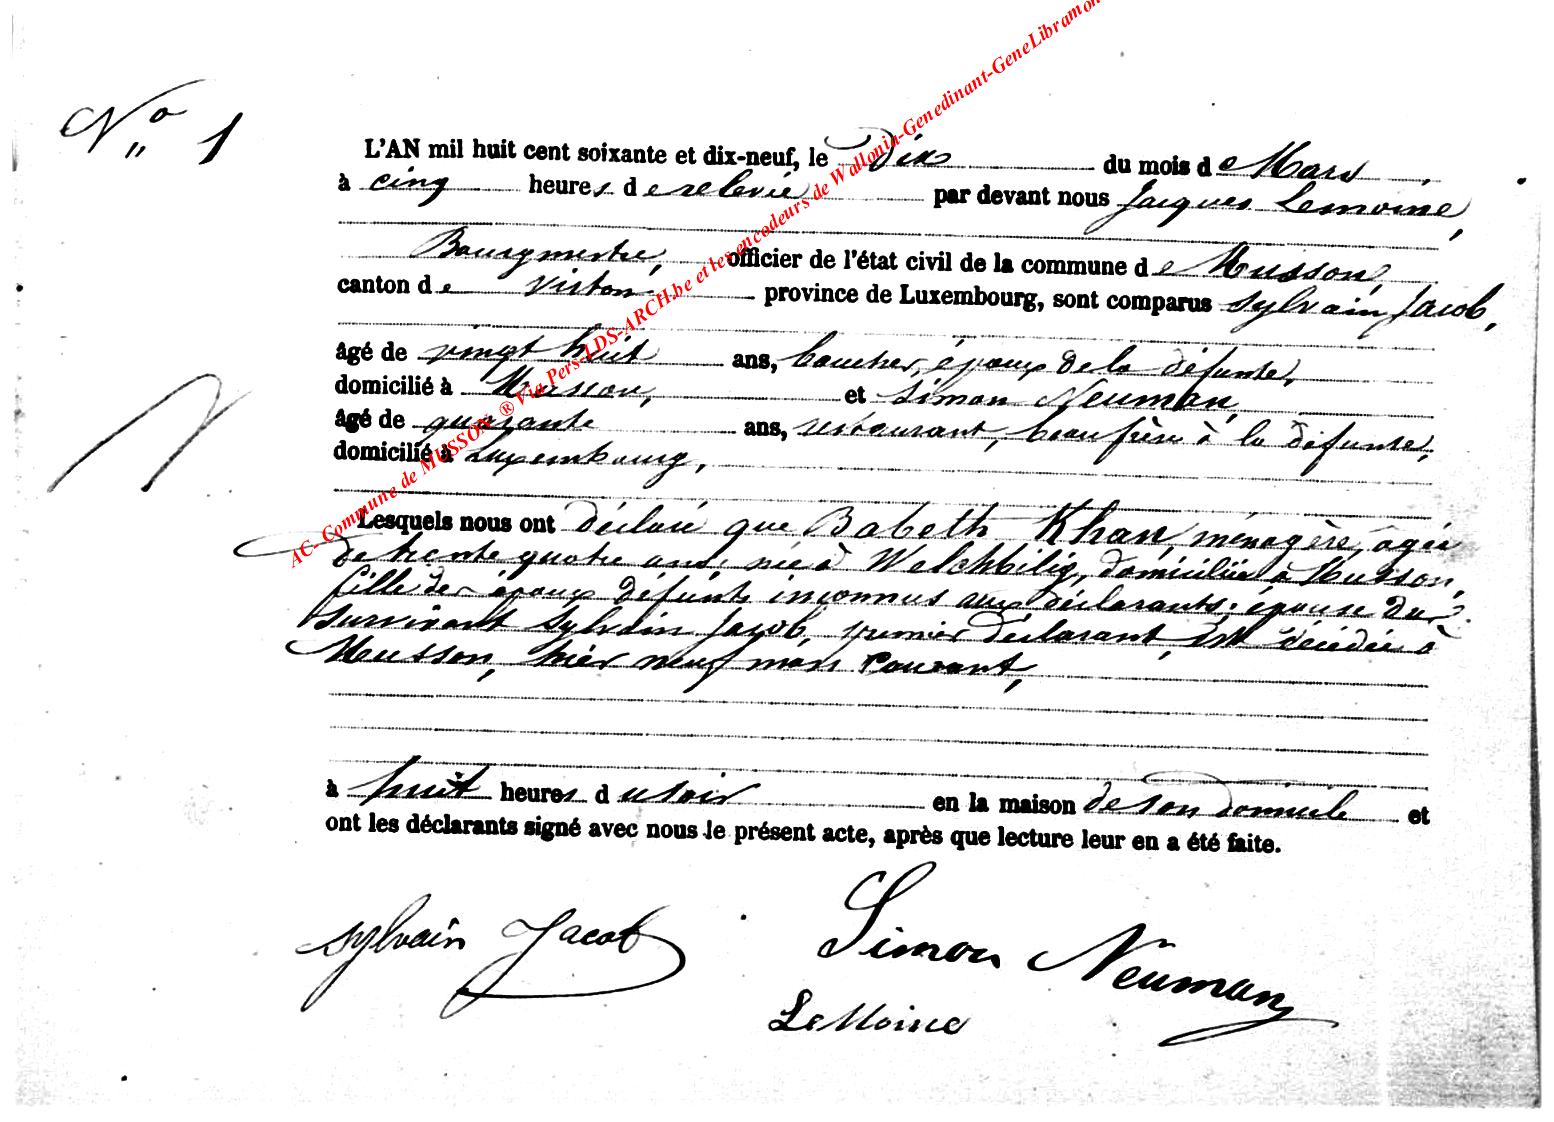 N° 1
L'AN mil huit cent soixante et dix-neuf, le dix du mois de Mars,
à cinq heures de relevée par devant nous Jacques Lemoine,
Bourgmestre, officier de l'état civil de la commune de Musson,
canton de Virton, province de Luxembourg, sont comparus Sylvain Jacob,
âgé de vingt huit ans, boucher, époux de la défunte,
domicilié à Musson, et Simon Neuman,
âgé de quarante ans, restaurant, beau frère à la défunte,
domicilié à Luxembourg,
Lesquels nous ont déclaré que Babeth Khan, ménagère, agée
de trente quatre ans, née à Welchbilig, domiciliée à Musson,
fille des époux défunts inconnus aux déclarants, épouse du
survivant Sylvain Jacob, premier déclarant, est décédée à
Musson, hier neuf mars courant,
à huit heures du soir en la maison de son domicile et
ont les déclarants signé avec nous le présent acte, après que lecture leur en a été faite.
Sylvain Jacob
Simon Neuman
LeMoine
AC- Commune de MUSSON ® Via Pers-LDS-ARCH.be et les encodeurs de Wallonia-Genedinant-GeneLibramon